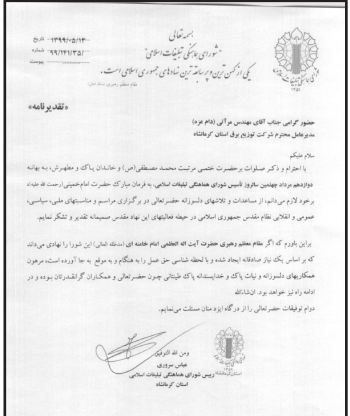 بسمه تعالی
تاریخ ۱۳۹۹/۰۵/۱۴
"شورای هماهنگی تبلیغات اسلامی"
شماره ۹۹/۱۴۱/۳۵/
یکی از کهن ترین و پر سابقه ترین نهادهای جمهوری اسلامی است.
پیوست
مقام معظم رهبری
«تقدیرنامه»
حضور گرامی جناب آقای مهندس مرآتی (دام عزه)
مدیرعامل محترم شرکت توزیع برق استان کرمانشاه
سلام علیکم
با احترام و ذکر صلوات برحضرت ختمی مرتبت محمد مصطفی(ص) و خاندان پاک و مطهرش، به بهانه
دوازدهم مرداد چهلمین سالروز تأسیس شورای هماهنگی تبلیغات اسلامی، به فرمان مبارک حضرت امام‌خمینی (رحمت الله علیه)
برخود لازم می‌دانم، از مساعدات و تلاشهای دلسوزانه حضرتعالی در برگزاری مراسم و مناسبتهای ملی، سیاسی،
عمومی و انقلابی نظام مقدس جمهوری اسلامی در حیطه فعالیتهای این نهاد مقدس صمیمانه تقدیر و تشکر نمایم.
براین باورم که اگر مقام معظم رهبری حضرت آیت اله العظمی امام خامنه ای (مدظله العالی) این شورا را نهادی می‌داند
که بر اساس یک نیاز صادقانه ایجاد شده و با لحظه شناسی حق عمل را به هنگام و به موقع به جا آورده است، مرهون
همکاریهای دلسوزانه و نیات پاک و خدایسندانه پاک طینتانی چون حضرتعالی و همکاران گرانقدرتان بوده و در
ادامه راه نیز خواهد بود. ان‌شاءالله
دوام توفیقات حضرتعالی را از درگاه ایزد منان مسئلت می‌نمایم.
ومن الله التوفیق
عباس سروری
رییس شورای هماهنگی تبلیغات اسلامی
استان کرمانشاه